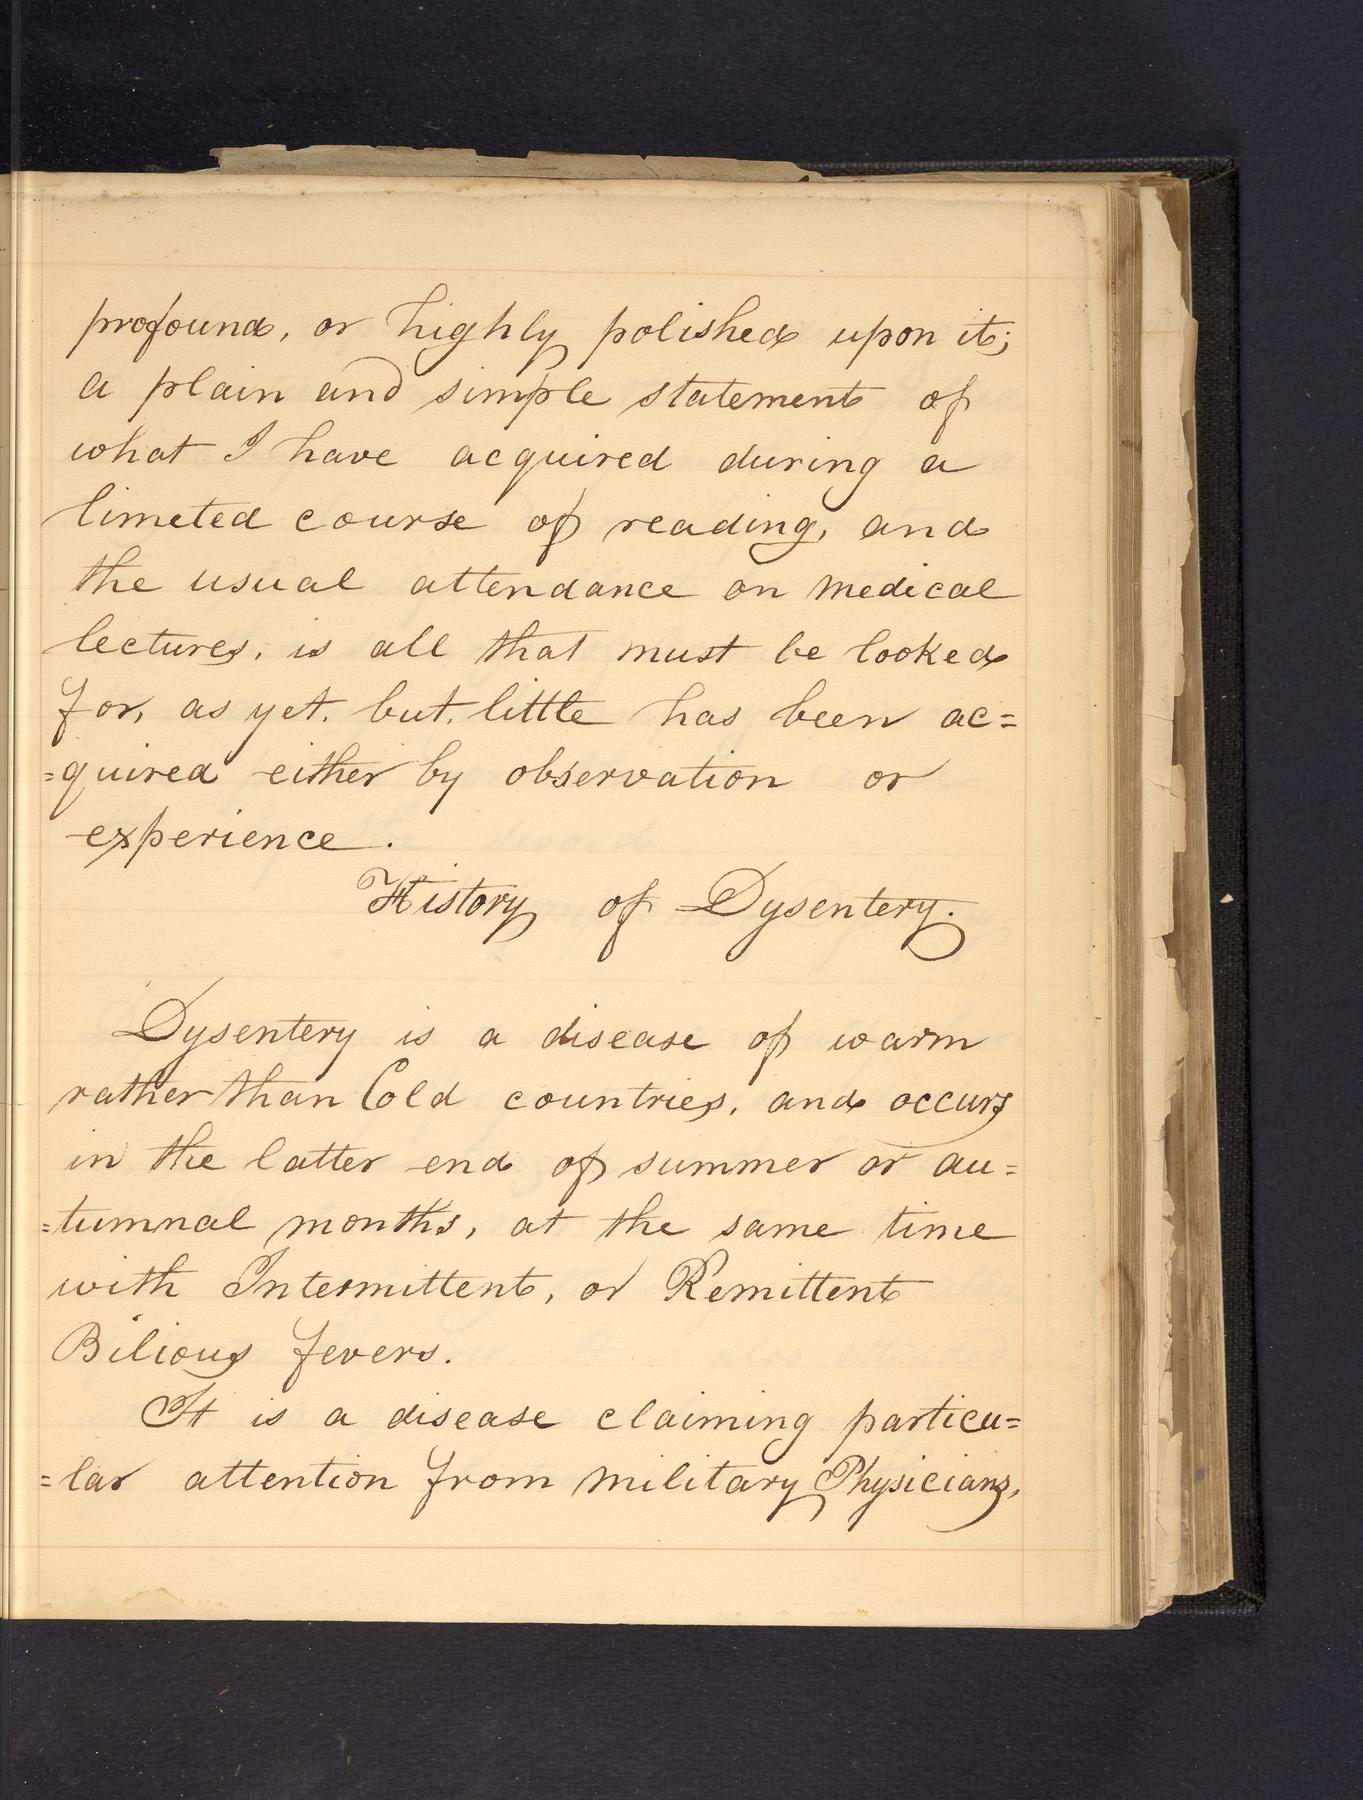 profound, or highly polished upon it;
a plain and simple statement of
what I have acquired during a
limeted course of reading, and
the usual attendance on medical
lectures, is all that must be looked
for, as yet, but, little has been ac=
=quired either by observation or
experience.
History of Dysentery.
Dysentery is a disease of warm
rather than Cold countries, and occurs
in the latter end of summer or au=
=tumnal months, at the same time
with Intermittent, or Remittent
Bilious fevers.
It is a disease claiming particu=
=lar attention from military Physicians,